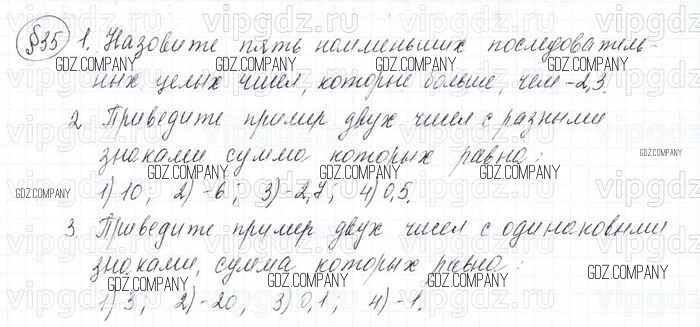 §35 1. Назовите пять наименьших последователь-
ных целых чисел, которые больше, чем -2,3.
2. Приведите пример двух чисел с разными
знаками сумма которых равна:
1) 10; 2) -6; 3) -2,7; 4) 0,5.
3. Приведите пример двух чисел с одинаковыми
знаками, сумма которых равна:
1) 3; 2) -20; 3) 0,1; 4) -1.
GDZ.COMPANY
vipgdz.com